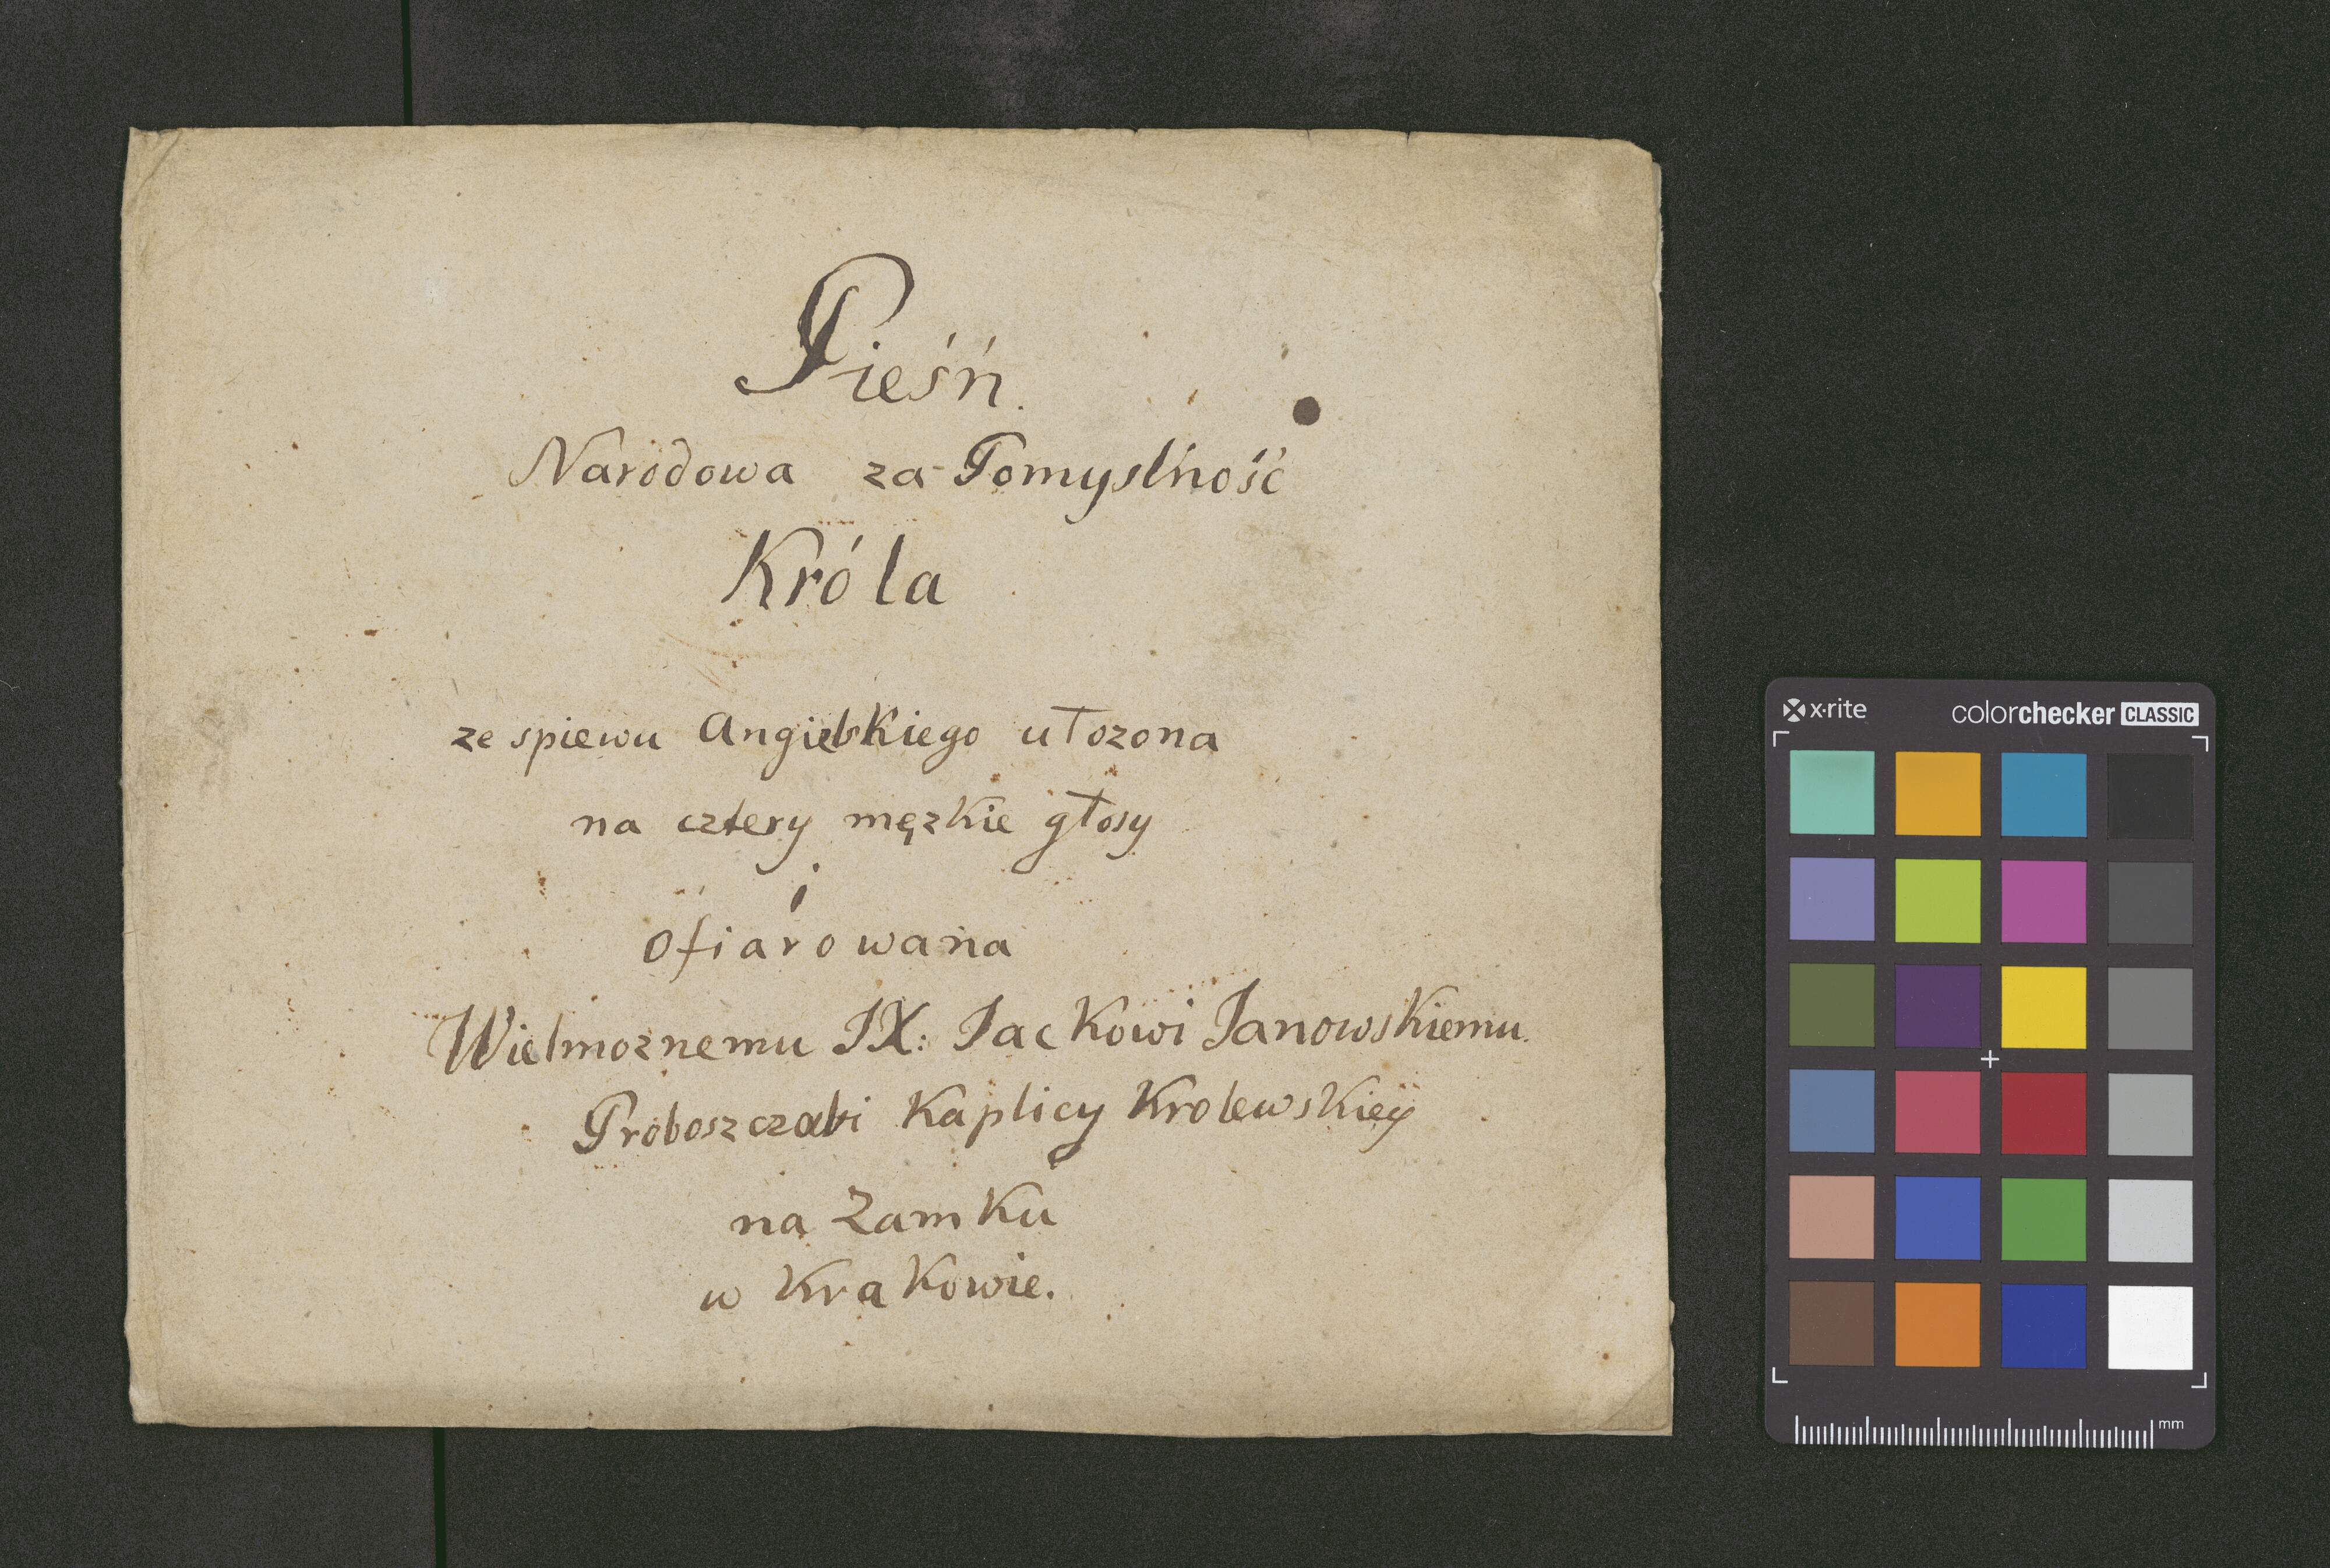 Pieśń.
Narodowa za Pomyslność
Króla
ze spiewu Angielskiego ułozona
na cztery męzkie głosy
i
ofiarowana
Wielmoznemu JX: Jackowi Janowskiemu.
Proboszczowi Kaplicy Krolewskiey
na Zamku
w Krakowie.
x·rite
colorchecker CLASSIC
mm